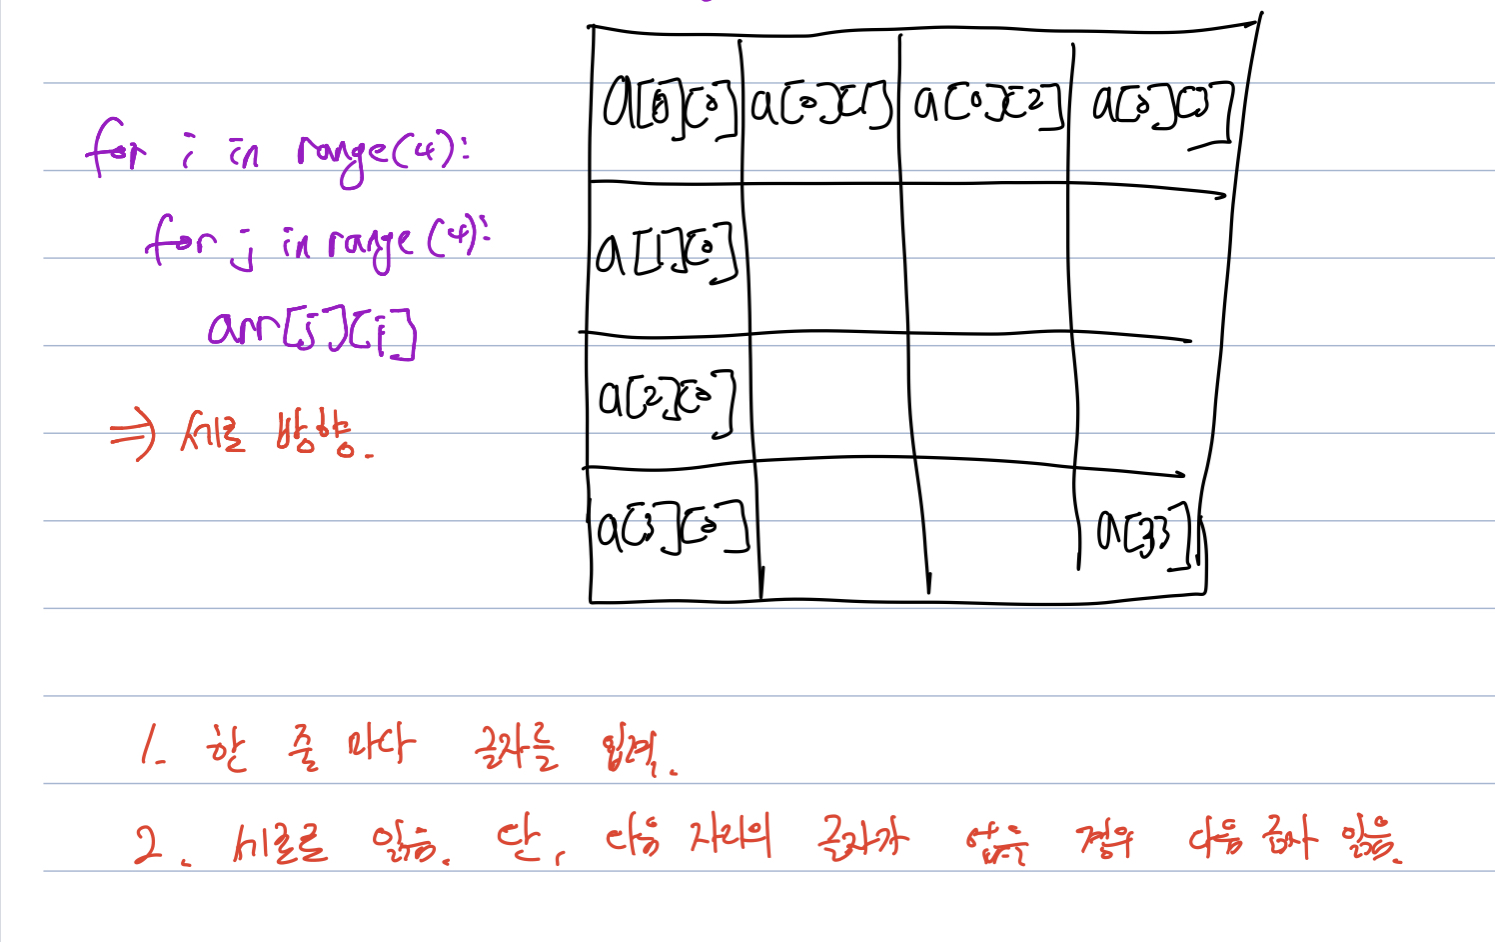 for i in range(4):
for j in range(4):
arr[j][i]
⇒ 세로 방향.
a[0][0] a[0][1] a[0][2] a[0][3]
a[1][0]
a[2][0]
a[3][0] a[33]
1. 한 줄 마다 글자를 입력.
2. 세로로 읽음. 단, 다음 자리의 글자가 없는 경우 다음 글자 읽음.